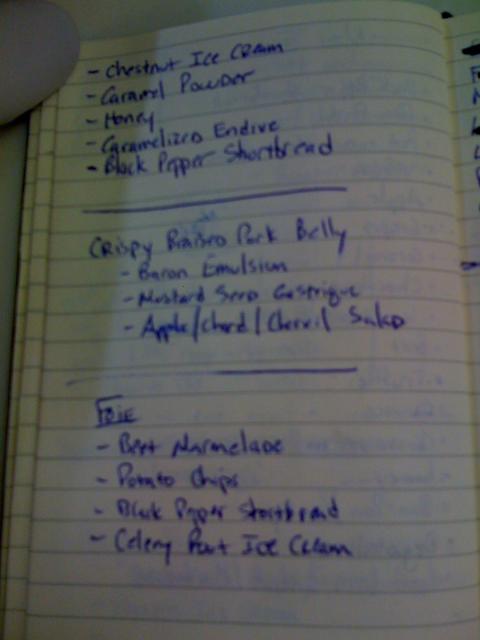 - Chestnut Ice Cream
- Caramel Powder
- Honey
- Caramelized Endive
- Black Pepper Shortbread
Crispy Braised Pork Belly
- Bacon Emulsion
- Mustard Seed Gastrique
- Apple/Chard/Chervil Salad
Foie
- Beet Marmelade
- Potato Chips
- Black Pepper Shortbread
- Celery Root Ice Cream